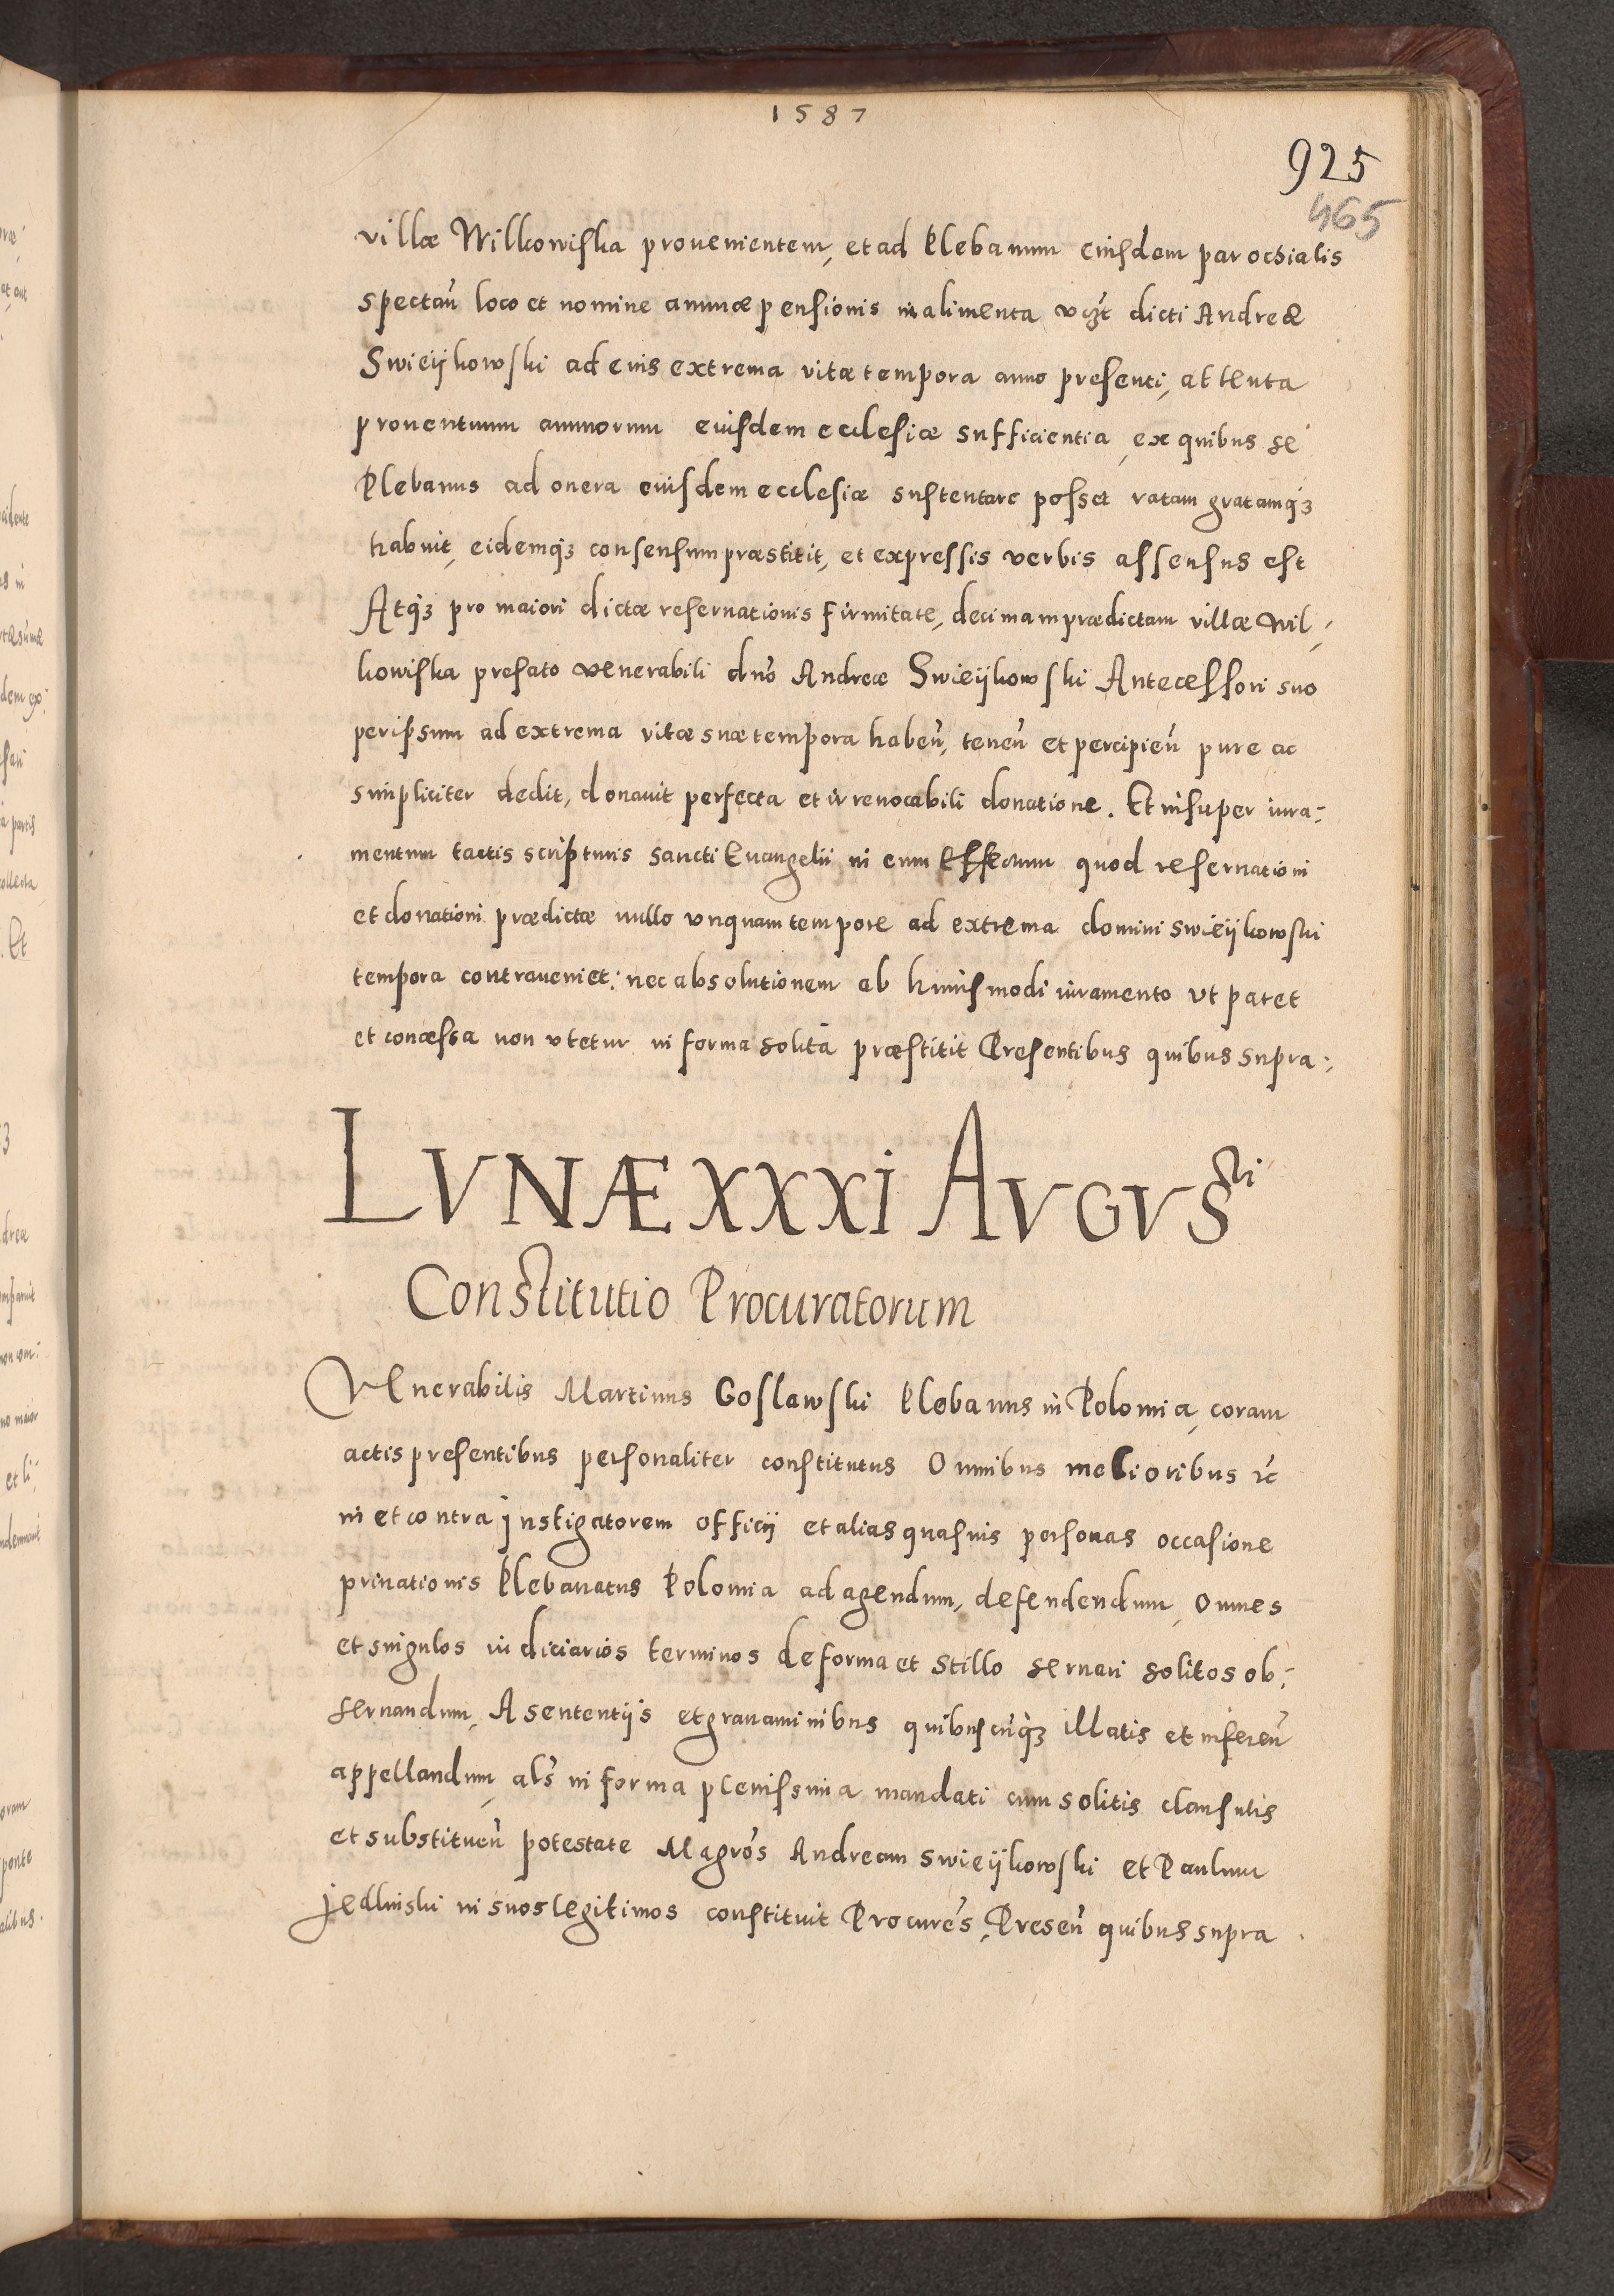 1587
925
465
villæ Wilkowiska prouenientem, et ad Plebanum eiusdem parochialis
spectan̄ loco et nomine annuæ pensionis in alimenta vɜt dicti Andreæ
Swieijkowski ad eius extrema vitæ tempora anno presenti, attenta
prouentuum annuorum eiusdem ecclesiæ sufficientia, ex quibus se
Plebanus ad onera eiusdem ecclesiæ sustentare posset ratam gratamqʒ
habuit, eidemqʒ consensum præstitit, et expressis verbis assensus est
Atqʒ pro maiori dictæ reseruationis firmitate, decimam prædictam villæ Wil-
kowiska prefato venerabili dno Andreæ Swieijkowski Antecessori suo
per ipsum ad extrema vitæ suæ tempora haben̄, tenen̄ et percipien̄ pure ac
simpliciter dedit, donauit perfecta et irreuocabili donatione. Et insuper iura-
mentum tactis scripturis sancti Euangelii in eum Effectum quod reseruationi
et donationi prædictæ nullo vnquam tempore ad extrema domini swieijkowski
tempora contraueniet: nec absolutionem ab huiusmodi iuramento vt patet
et concessa non vtetur in forma solita præstitit Presentibus quibus supra.
LVNÆ XXXI AVGVSti
Constitutio Procuratorum
Venerabilis Martinus Goslawski Plebanus in Polomia, coram
actis presentibus personaliter constitutus Omnibus melioribus ꝛc
in et contra Instigatorem officij et alias quasuis personas occasione
priuationis Plebanatus Polomia ad agendum, defendendum, Omnes
et singulos iudiciarios terminos de forma et stillo seruari solitos ob-
seruandum, A sententijs et grauaminibus quibuscunqʒ illatis et inferen̄
appellandum, als in forma plenissima mandati cum solitis clausulis
et substituen̄ potestate Magros Andream swieijkowski et Paulum
Jedlinski in suos legitimos constituit Procures, Presen̄ quibus supra.